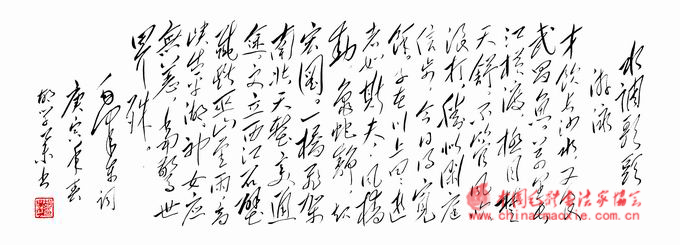 水调歌头
游泳
才饮长沙水,又食
武昌鱼。万里长
江横渡,极目楚
天舒。不管风吹
浪打,胜似闲庭
信步,今日得宽
馀。子在川上曰:逝
者如斯夫!风樯
动,龟蛇静,起
宏图。一桥飞架
南北,天堑变通
途。更立西江石壁
截断巫山云雨,高
峡出平湖。神女应
無恙,当惊世
界殊。
毛泽东词
庚寅年春
书
中国毛体书法家协会